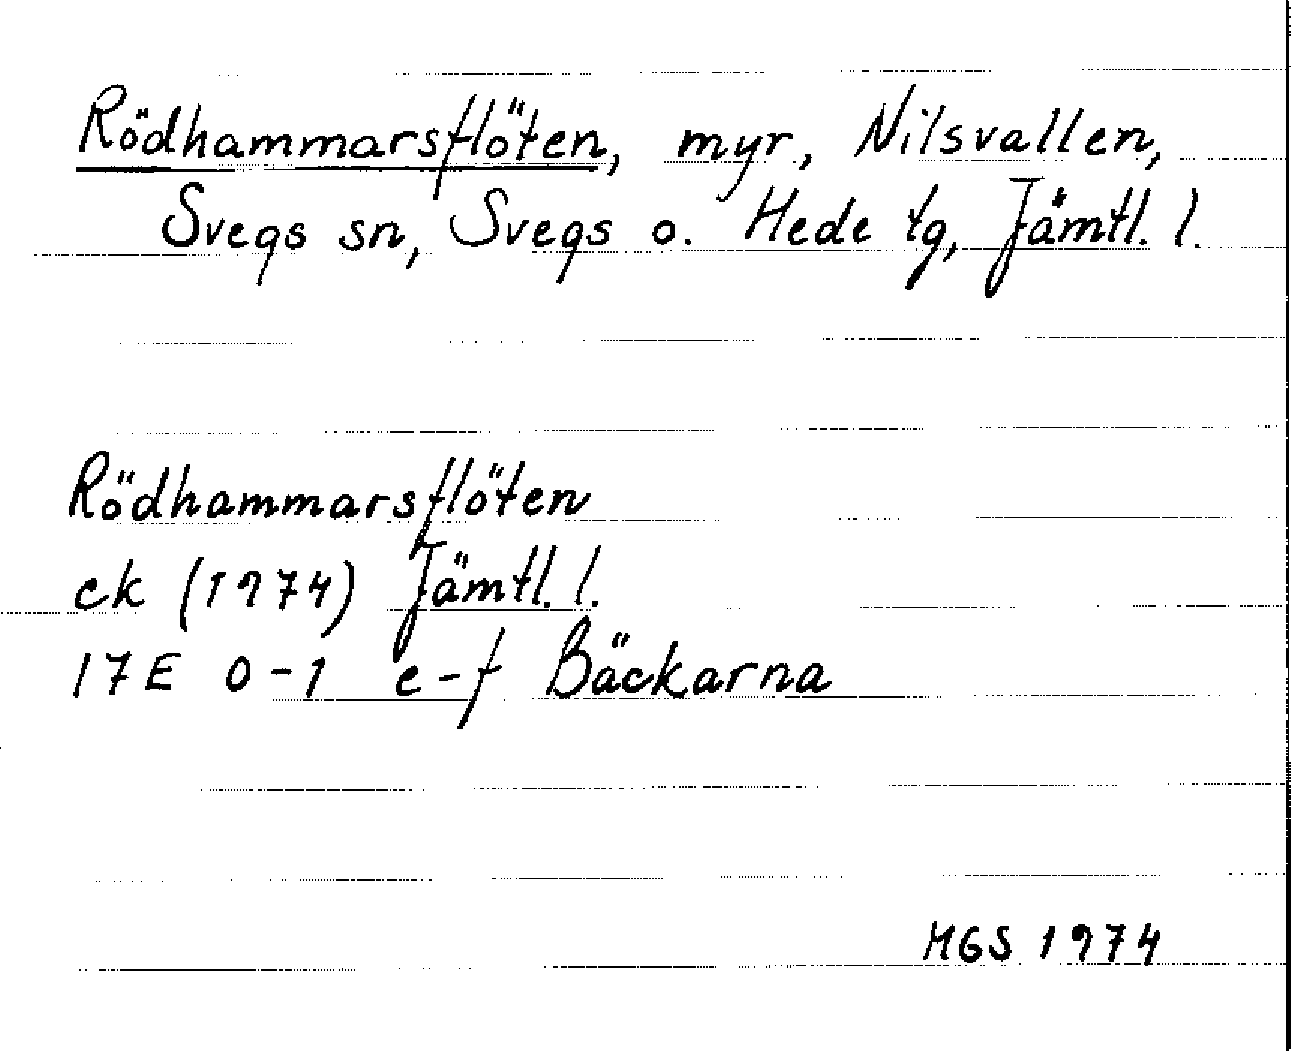 Rödhammarsflöten, myr, Nilsvallen,
Svegs sn, Svegs o. Hede tg, Jämtl. l.
Rödhammarsflöten
ek (1974) Jämtl. l.
17E 0-1 e-f Bäckarna
MGS 1974